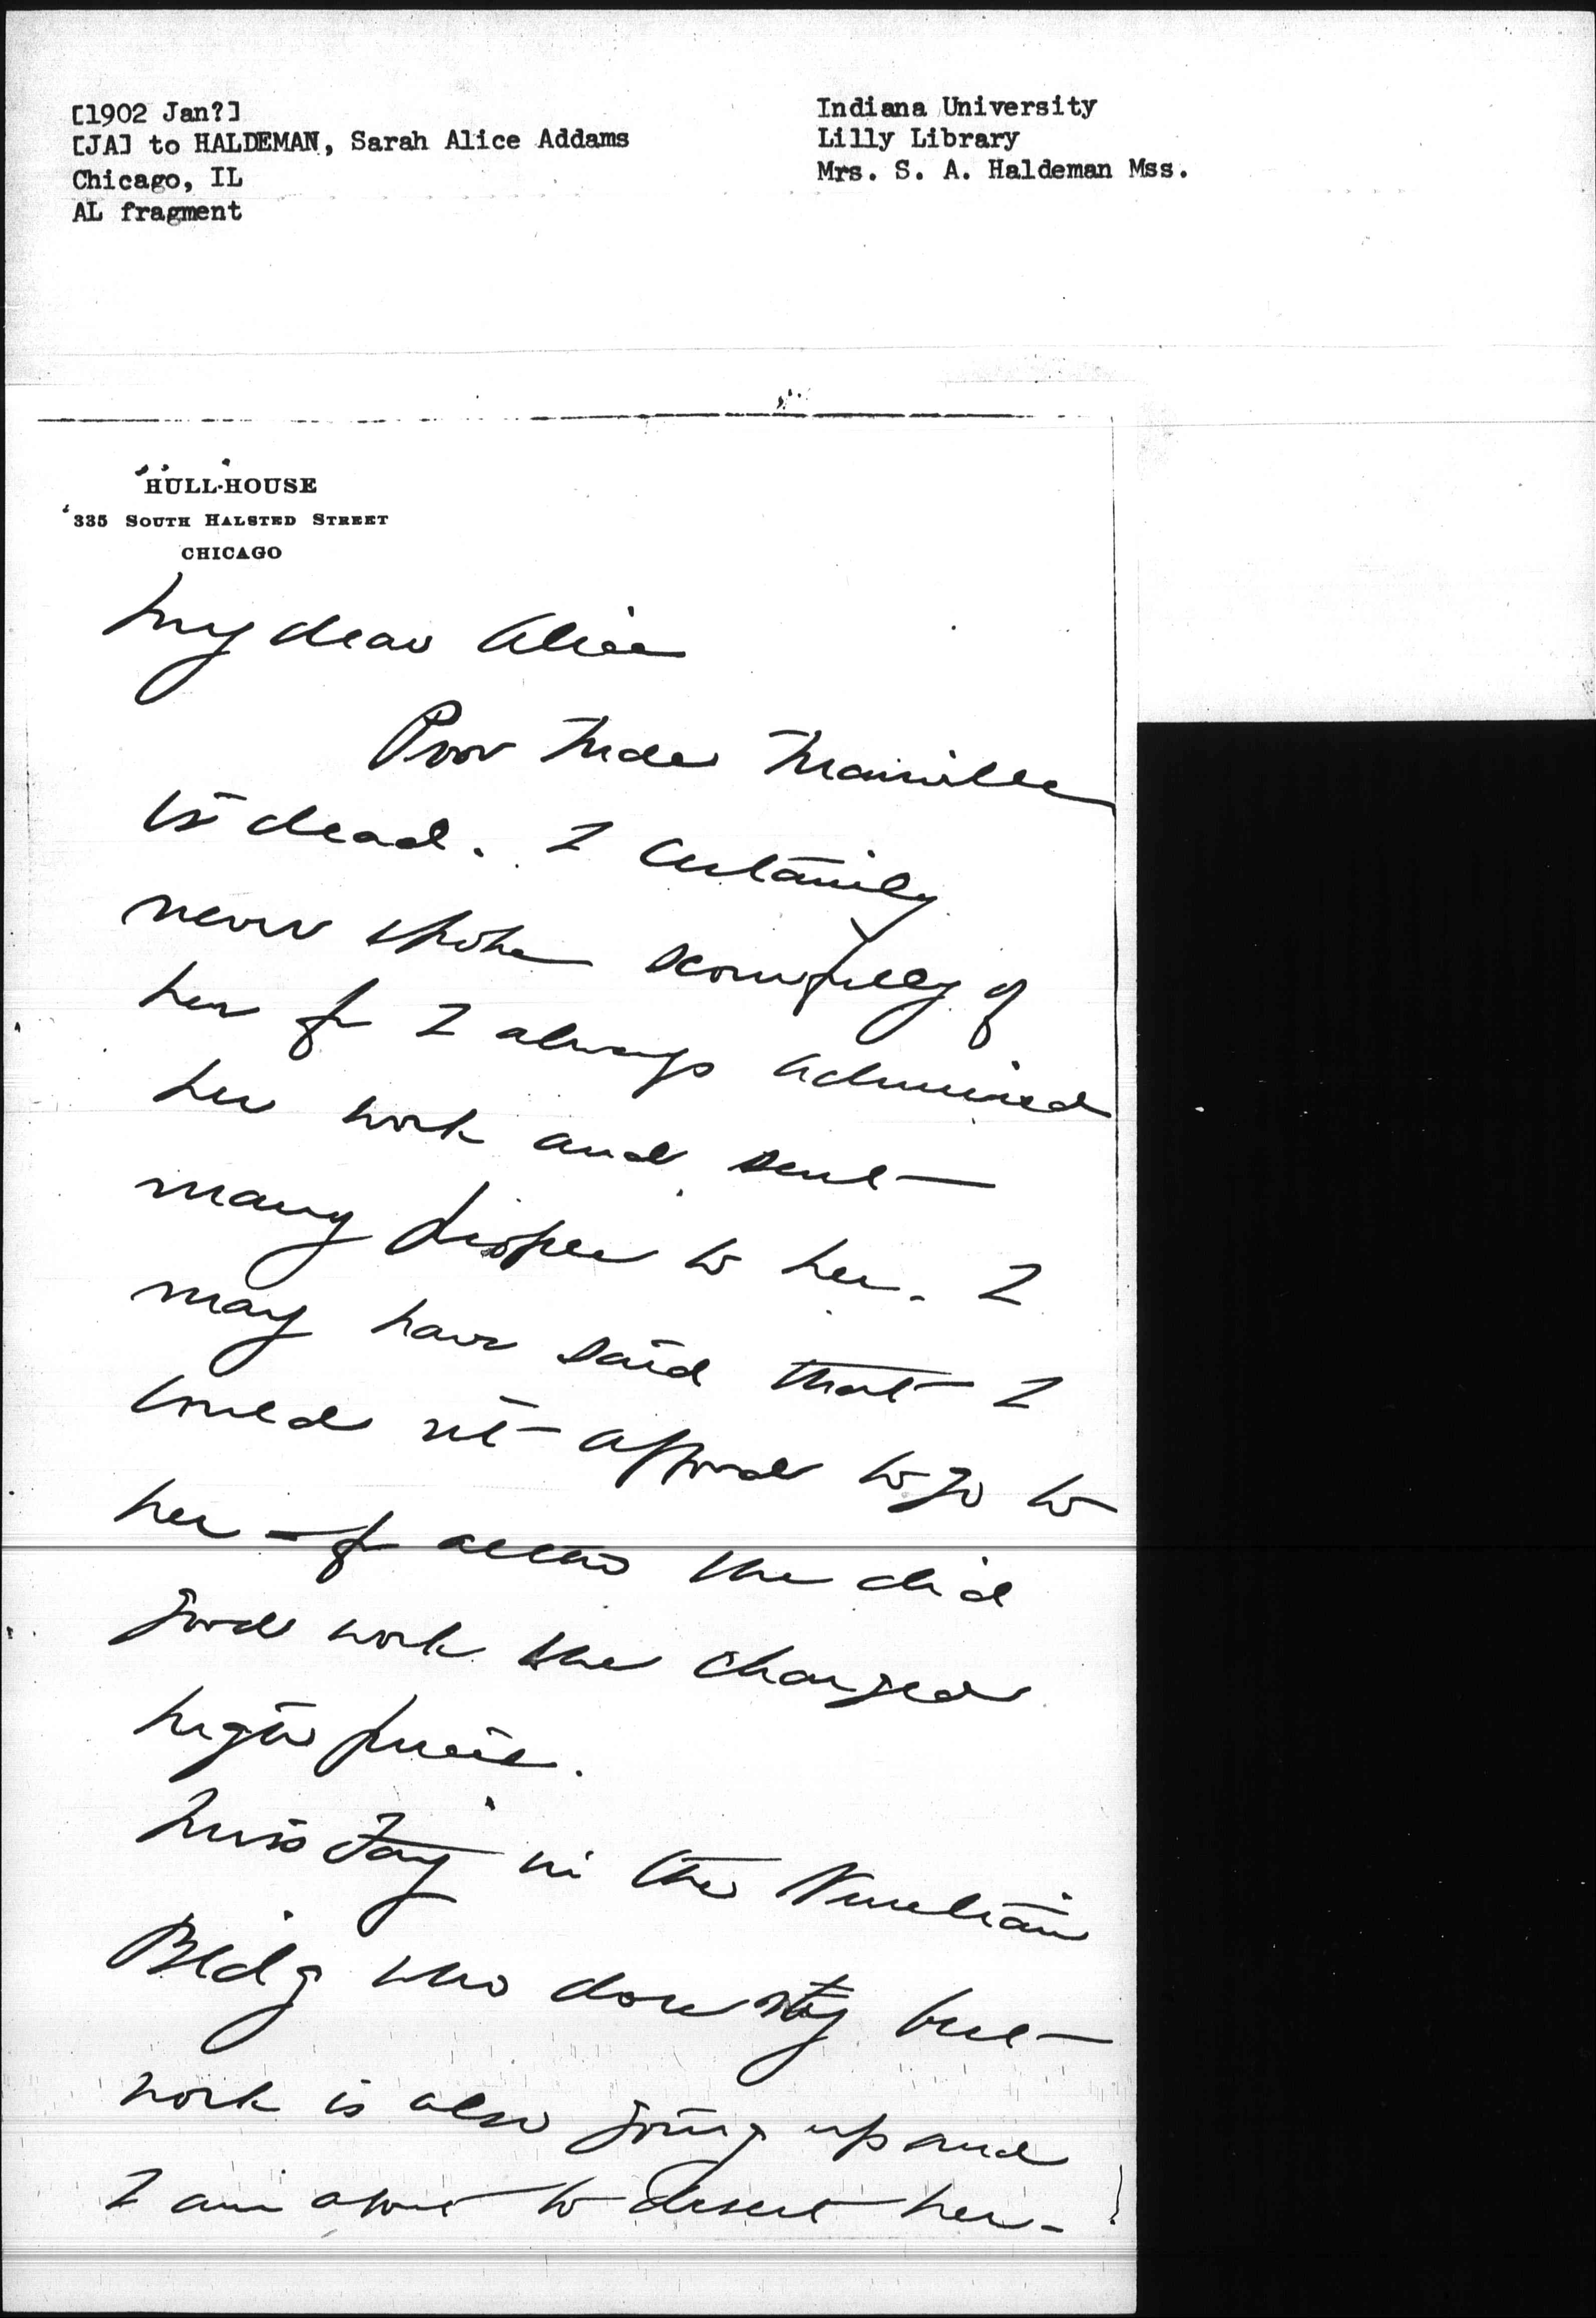 [1902 Jan?]
[JA] to HALDEMAN, Sarah Alice Addams
Chicago, IL
AL fragment
Indiana University
Lilly Library
Mrs. S. A. Haldeman Mss.
HULL-HOUSE
335 SOUTH HALSTED STREET
CHICAGO
My dear Alice
Poor Mde
is dead. I certainly
never spoke scornfully of
her for I always admired
her work and sent
many people to her. I
may have said that I
could not afford to go to
her — for altho she did
good work she charged
high prices.
Miss Fay in the Venetian
Bldg who does my best
work is also going up and
I am about to desert her.